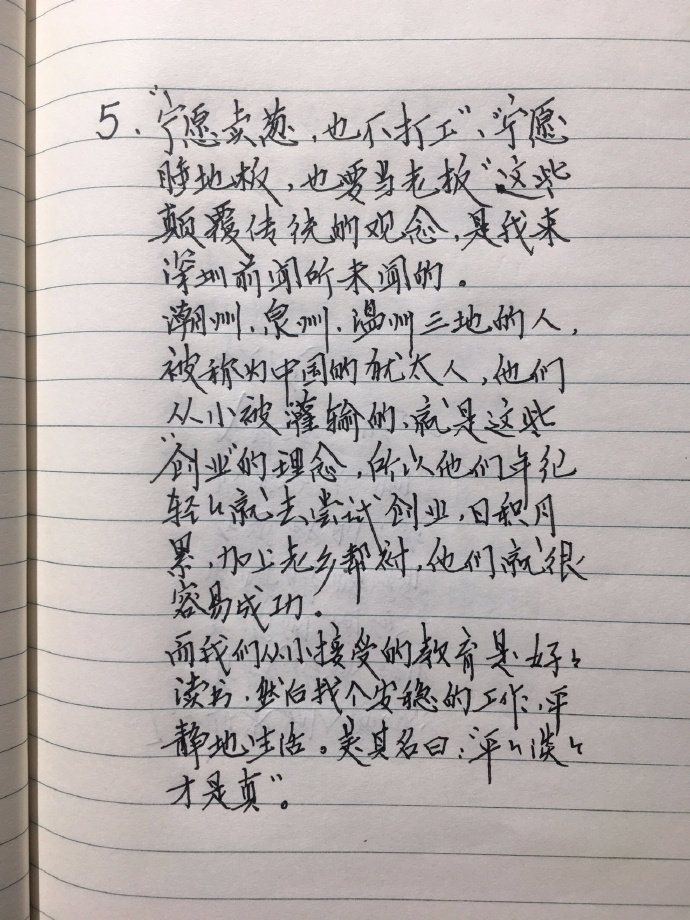 5、“宁愿卖葱，也不打工”、“宁愿
睡地板，也要当老板”这些
颠覆传统的观念，是我来
深圳前闻所未闻的。
潮州、泉州、温州三地的人，
被称为中国的犹太人，他们
从小被灌输的，就是这些
“创业”的理念，所以他们年纪
轻々就去尝试创业，日积月
累，加上老乡帮衬，他们就很
容易成功。
而我们从小接受的教育是：好々
读书，然后找个安稳的工作，平
静地生活。美其名曰：“平々淡々
才是真”。